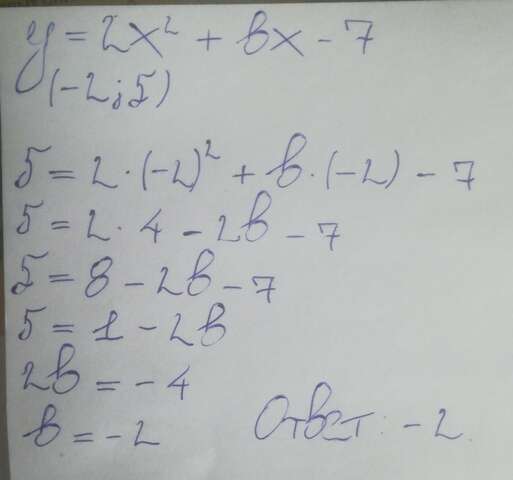 y = 2x² + bx - 7
(-2;5)
5 = 2·(-2)² + b·(-2) - 7
5 = 2·4 - 2b - 7
5 = 8 - 2b - 7
5 = 1 - 2b
2b = -4
b = -2 Ответ: -2.